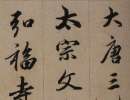 大唐三
太宗文
弘福寺